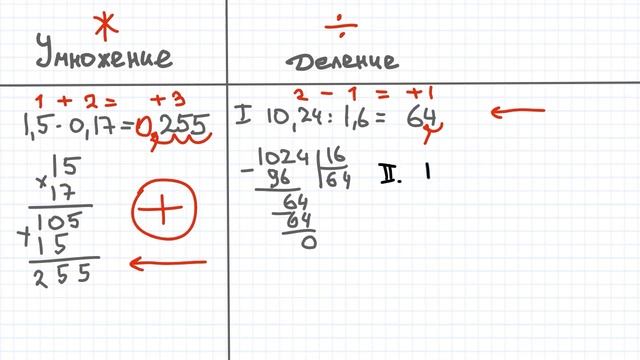 * ÷
Умножение
Деление
1 + 2 = +3
1,5 · 0,17 = 0,255
15
× 17
105
+ 15
255
+
2 - 1 = +1
I 10,24 : 1,6 = 64
1024 | 16
- 96 | 64
64
- 64
0
II. 1